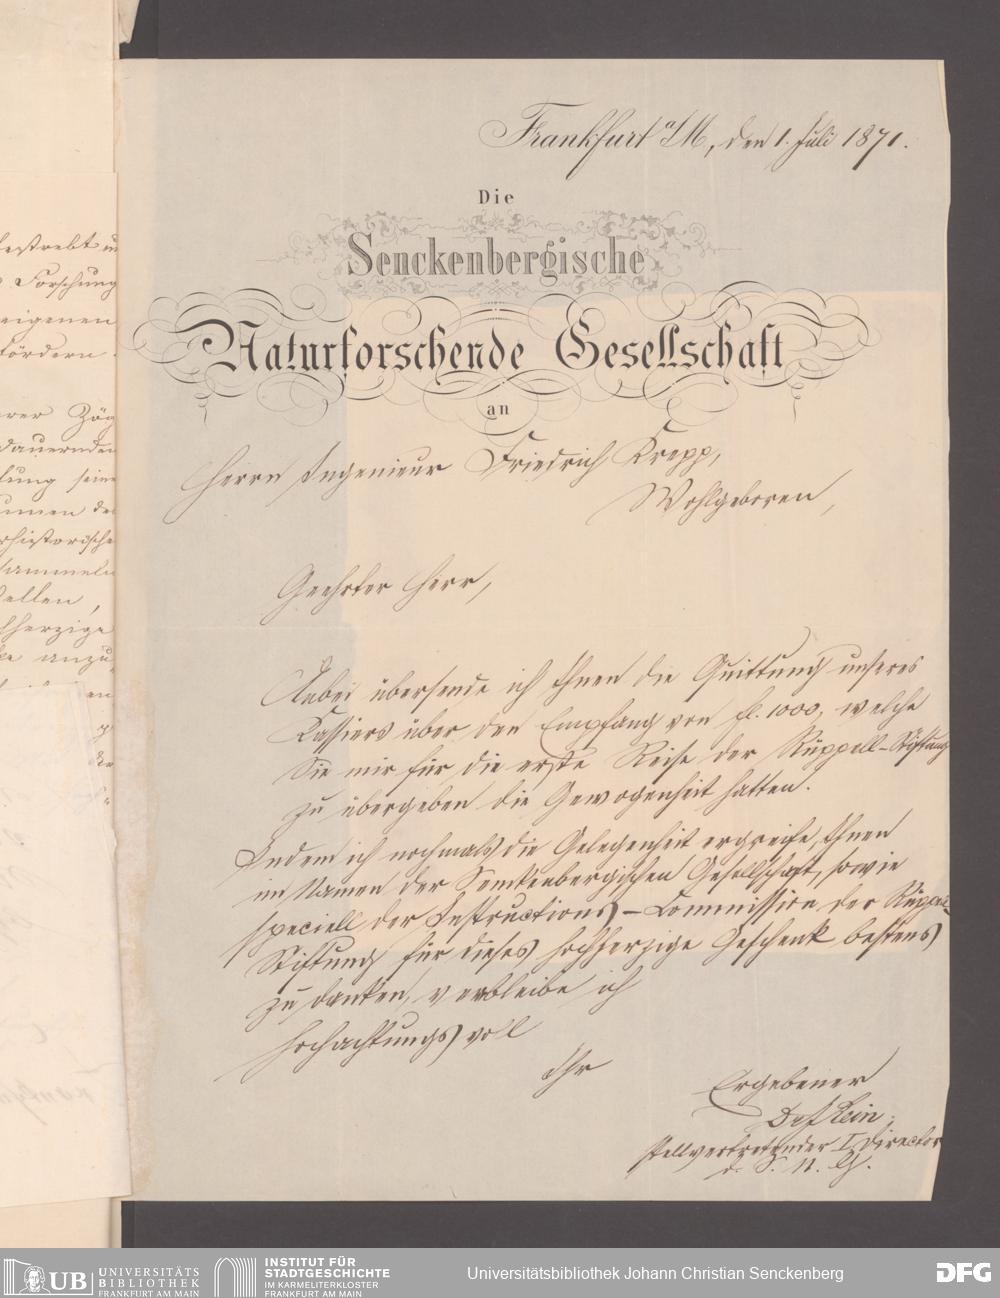 Frankfurt a/M, den 1. Juli 1871.
Die
Senckenbergische
Naturforschende Gesellschaft
an
Herrn Ingenieur Friedrich Krepp,
Wohlgeboren,
Geehrter Herr,
Anbei übersende ich Ihnen die Quittung unseres
Kassiers über den Empfang von fl. 1000, welche
Sie mir für die erste Reise der Rüppell-Stiftung
zu übergeben die Gewogenheit hatten.
Indem ich nochmals die Gelegenheit ergreife, Ihnen
im Namen der Senckenbergischen Gesellschaft, sowie
speciell der Instructions-Commission der Rüppell-
Stiftung für dieses hochherzige Geschenk bestens
zu danken, verbleibe ich
hochachtungsvoll
Ihr
Ergebener
stellvertretender I. Director
d. S. n. G.
bestrebt
Forschung
eigenen
fördern.
dauernden
seine
ellen,
herzige
anzu
UB UNIVERSITÄTS
BIBLIOTHEK
FRANKFURT AM MAIN
INSTITUT FÜR
STADTGESCHICHTE
IM KARMELITERKLOSTER
FRANKFURT AM MAIN
Universitätsbibliothek Johann Christian Senckenberg
DFG